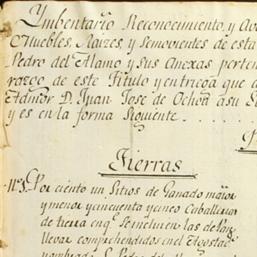 Ymbentario, Reconocimiento, y Ava
Muebles, Raizes, y Semovientes de esta
Pedro del Alamo y sus Anexas, perten
razgo de este Titulo y entriega que d
Admor D. Juan José de Ochoa a su S
y es en la forma Siguiente
Tierras
Por ciento un Sitios de Ganado maior
y menor y cincuenta y cinco Caballerias
de tierra en qᵉ se incluien las de la
llevar comprehendidos en el